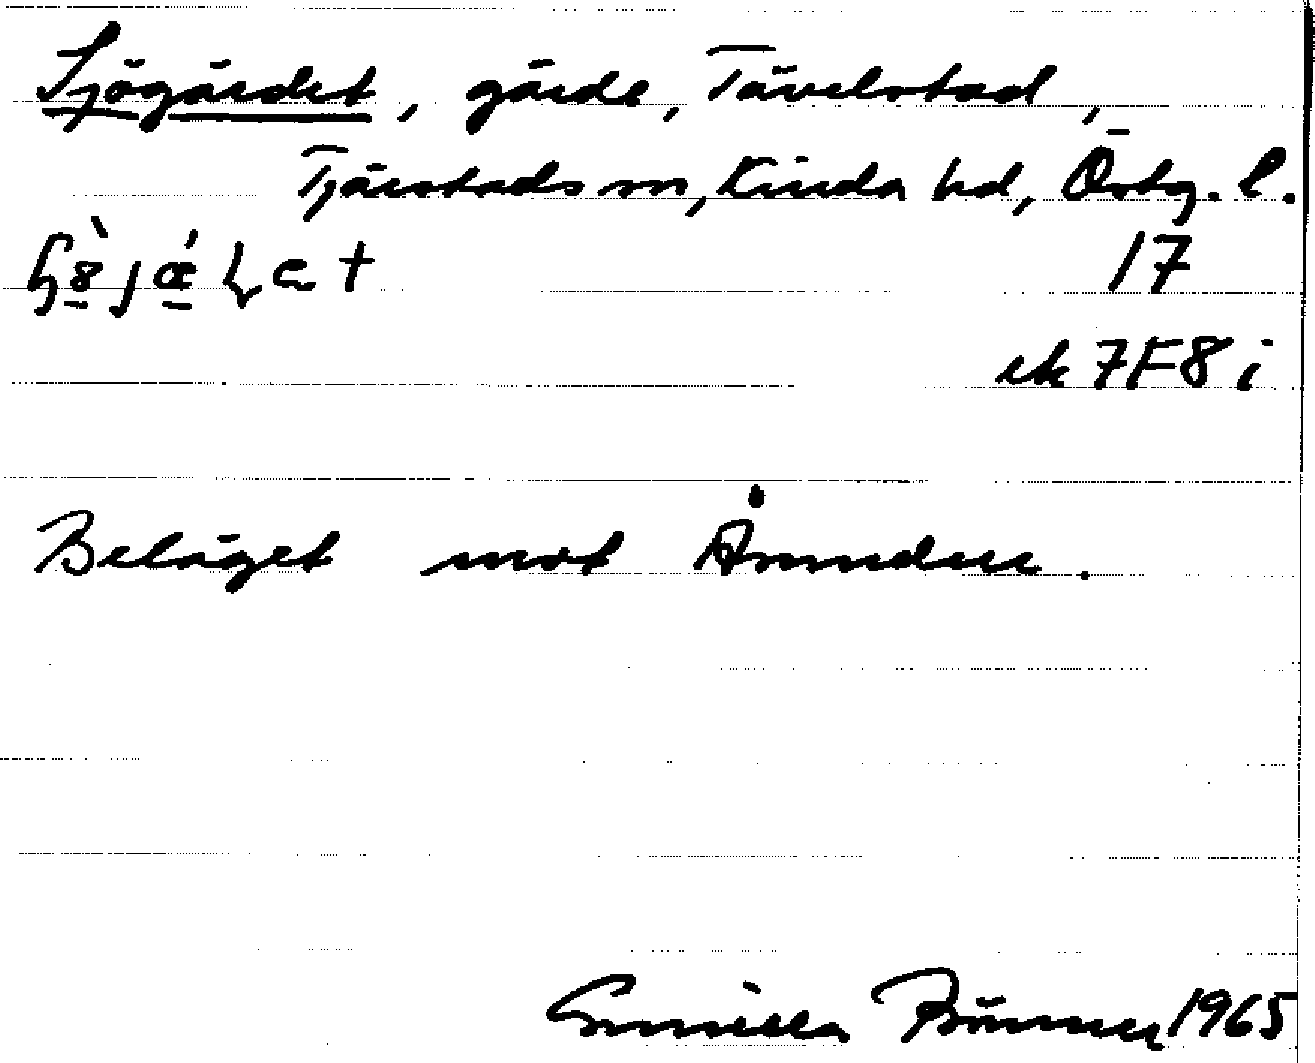 Sjögärdet, gärde, Tävelstad,
Tjärstads sn, Kinda hd, Östg. l.
17
ek 7F8i
Beläget mot Åsunden.
Gunilla 1965